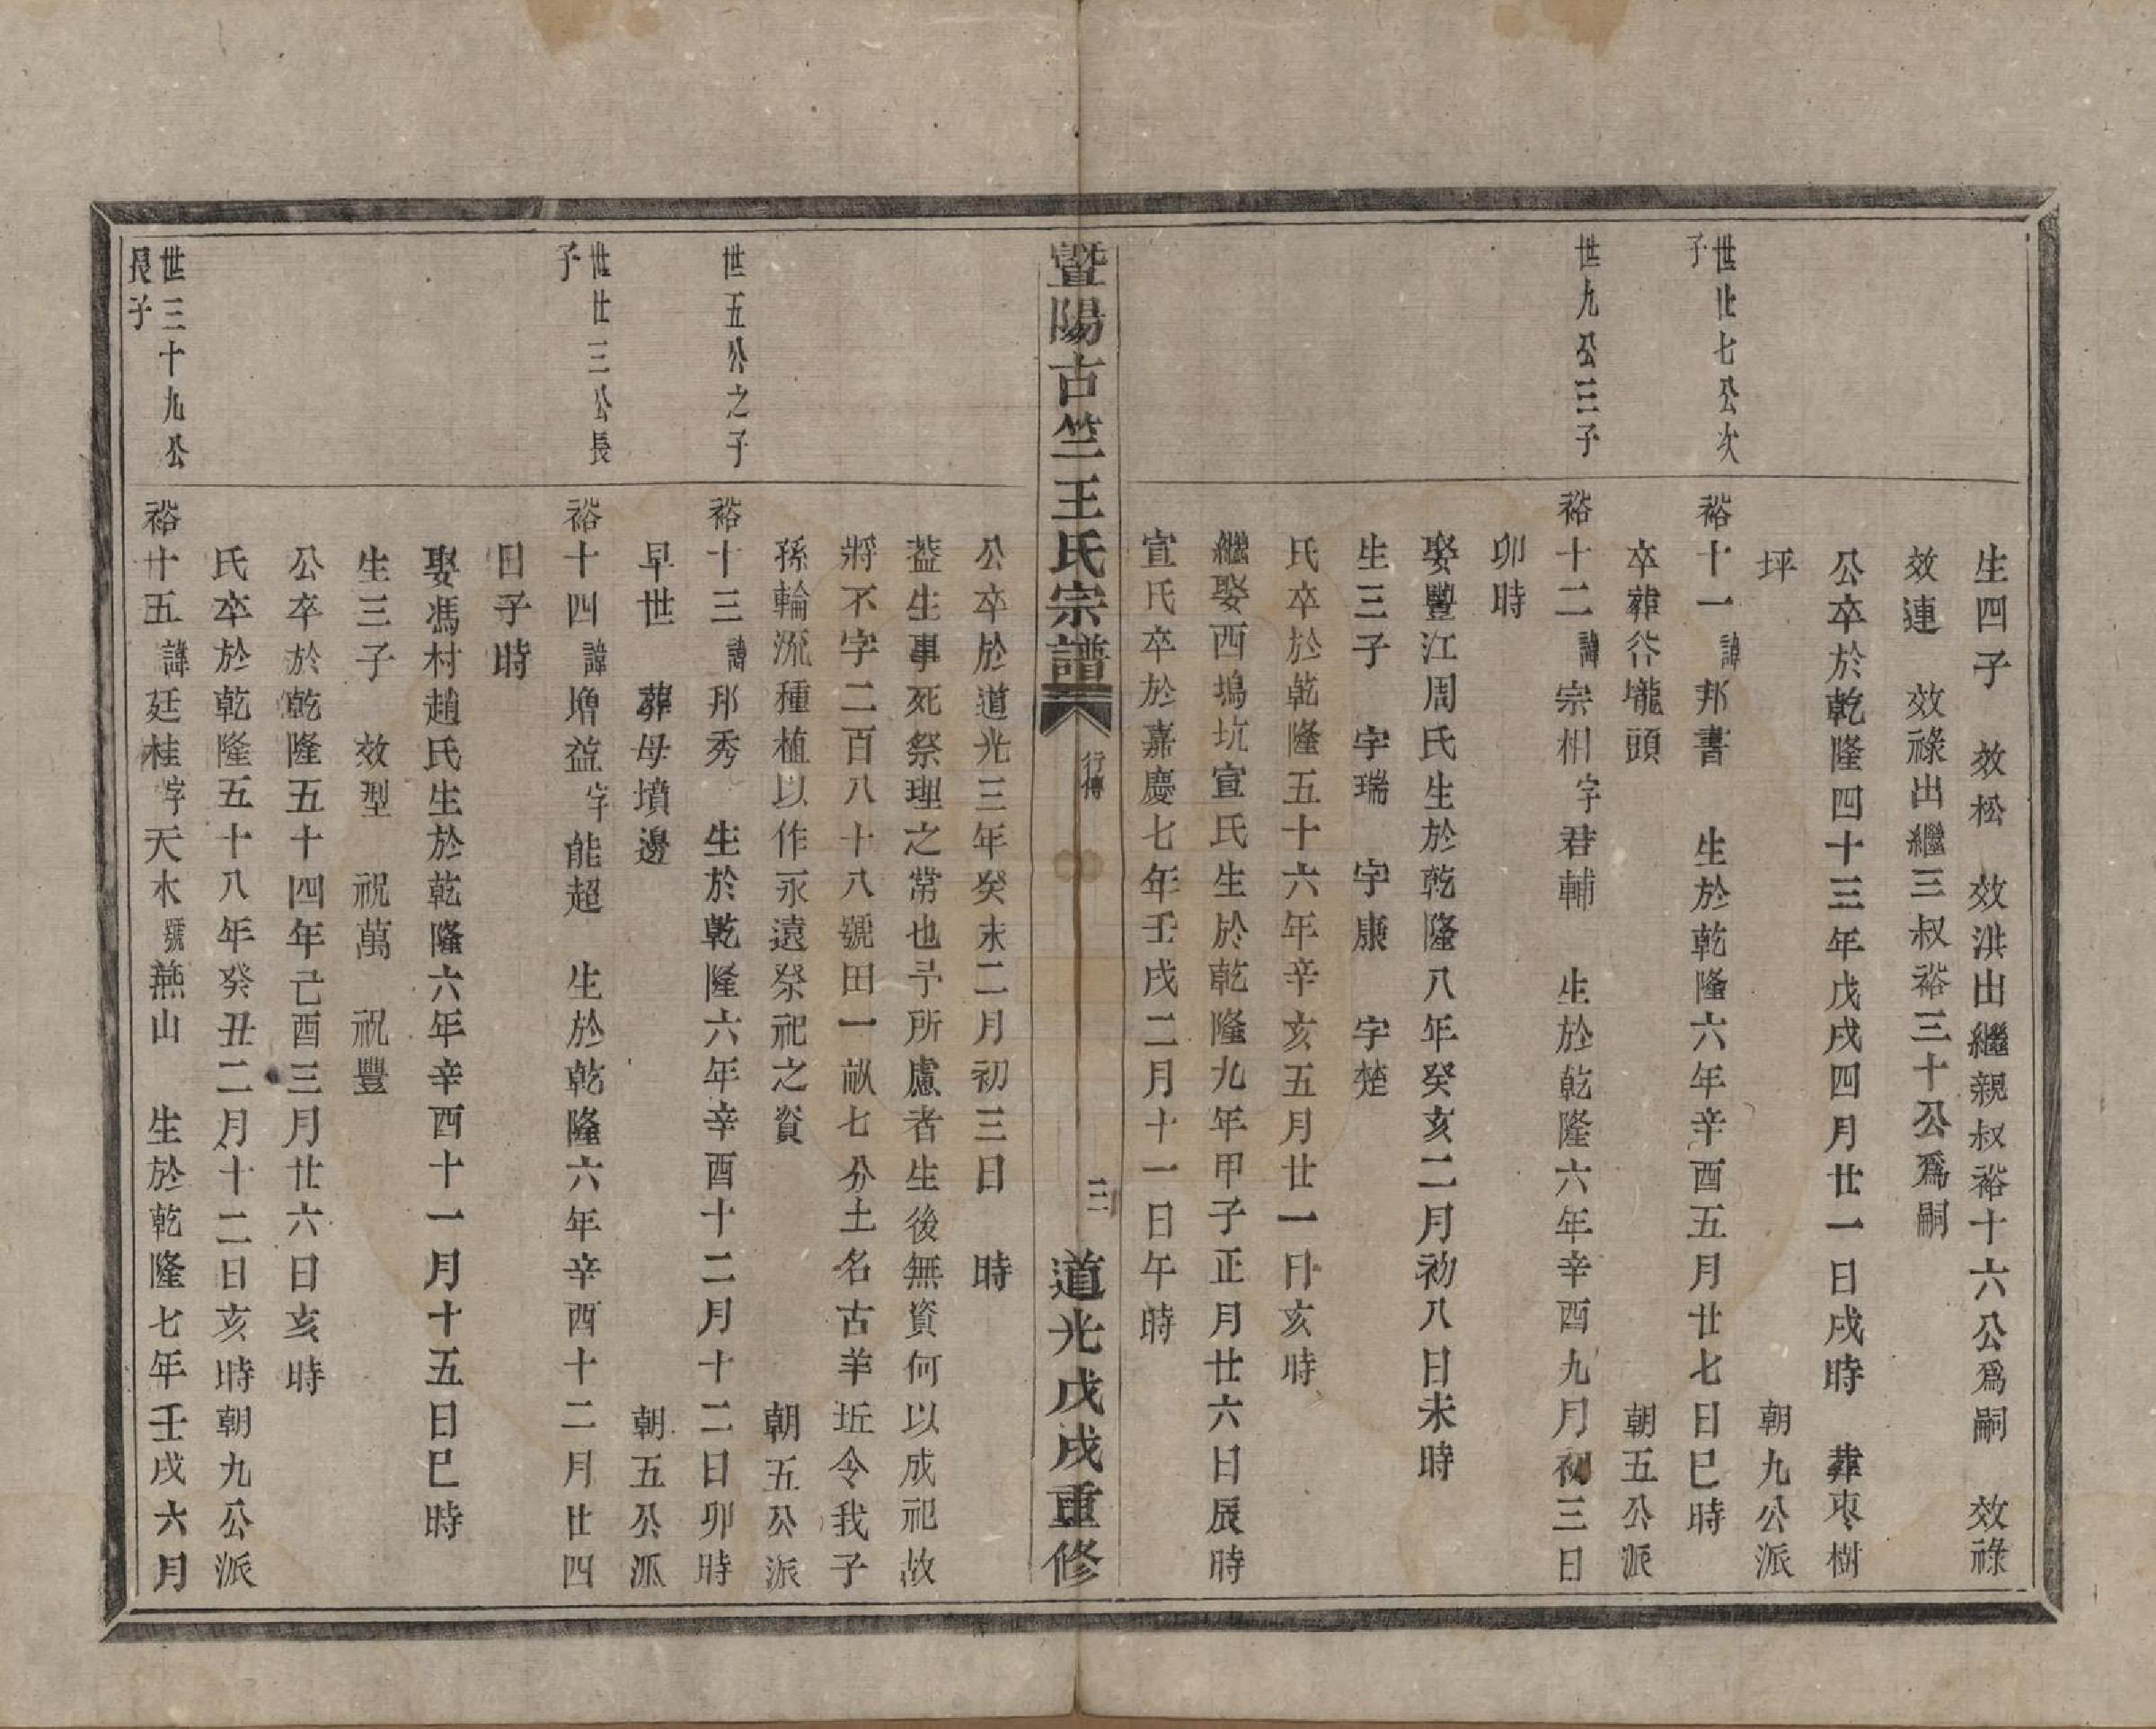 生四子　效松　效洪出繼親叔裕十六公爲嗣　效祿
效連　效祿出繼三叔裕三十公爲嗣
公卒於乾隆四十三年戊戌四月廿一日戌時　葬枣樹
坪　朝九公派
世廿七公次
子
裕十一諱邦書　生於乾隆六年辛酉五月廿七日巳時
卒葬㕣壠頭　朝五公派
世九公三子
裕十二諱宗相字君輔　生於乾隆六年辛酉九月初三日
卯時
娶豐江周氏生於乾隆八年癸亥二月初八日未時
生三子　字瑞　字康　字楚
氏卒於乾隆五十六年辛亥五月廿一日亥時
繼娶西塢坑宣氏生於乾隆九年甲子正月廿六日辰時
宣氏卒於嘉慶七年壬戌二月十一日午時
暨陽古竺王氏宗譜　行傳　三　道光戊戌重修
公卒於道光三年癸未二月初三日　時
葢生事死祭理之常也予所慮者生後無資何以成祀故
將不字二百八十八號田一畝七分土名古羊坵令我子
孫輪流種植以作永遠祭祀之資　朝五公派
世五公之子
裕十三諱邦秀　生於乾隆六年辛酉十二月十二日卯時
早世　葬母墳邊　朝五公派
世廿三公長
子
裕十四諱增益字能超　生於乾隆六年辛酉十二月廿四
日子時
娶馮村趙氏生於乾隆六年辛酉十一月十五日巳時
生三子　效型　祝萬　祝豐
公卒於乾隆五十四年己酉三月廿六日亥時
氏卒於乾隆五十八年癸丑二月十二日亥時朝九公派
世三十九公
長子
裕十五諱廷桂字天木號燕山　生於乾隆七年壬戌六月